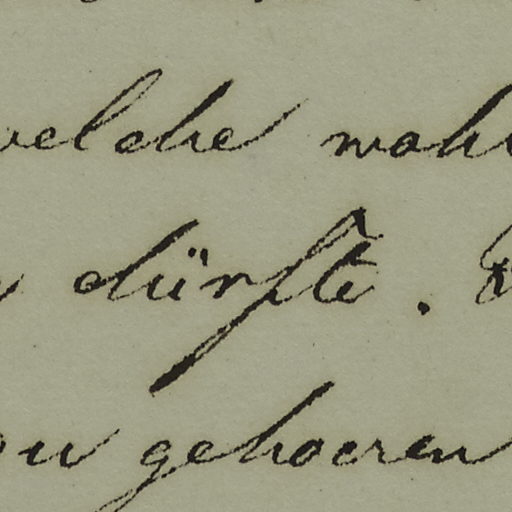 welche
dürfte.
zu gehoeren